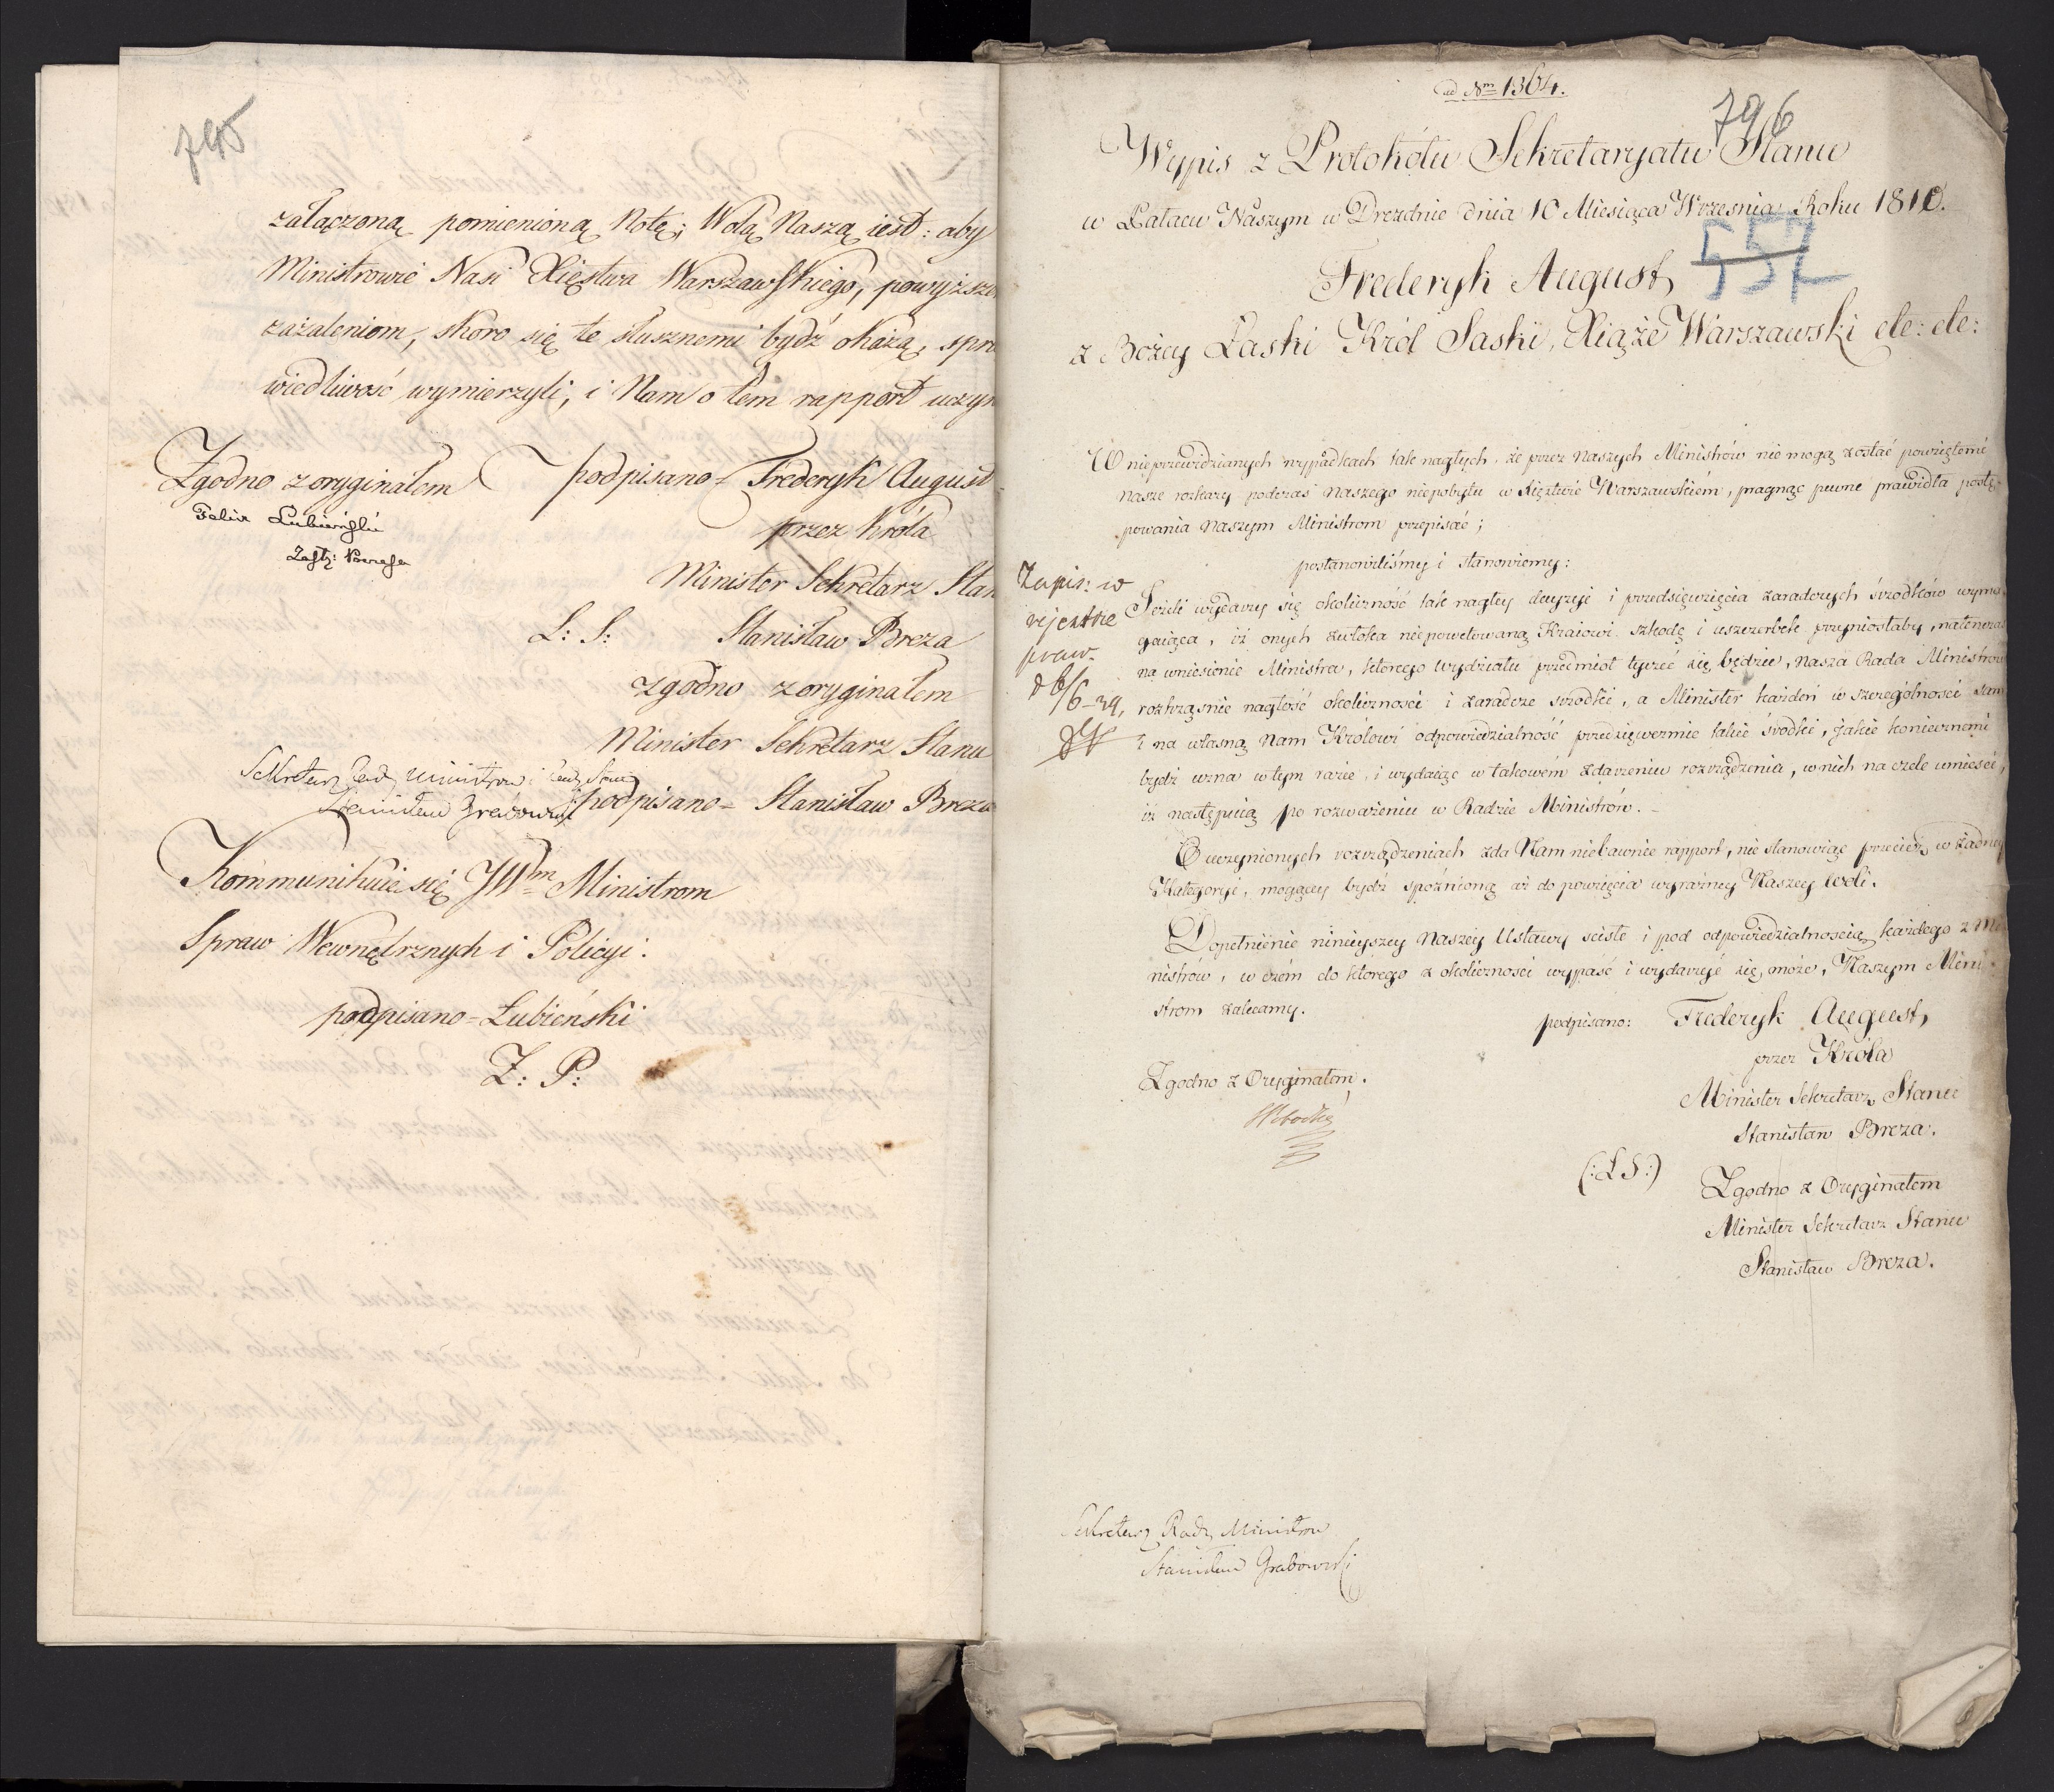 795
załączoną pomienioną Notę; Wolą Naszą iest: aby
Ministrowie Nasi Xięstwa Warszawskiego, powyższe
zażaleniom, skoro się te słusznemi bydź okażą, spra
wiedliwość wymierzyli, i Nam o tem rapport uczyn
Zgodno z oryginałem podpisano = Frederyk August
Felix Łubieński przez Króla
Zastę: Prezesa
Minister Sekretarz Stan
L: S: Stanisław Breza
zgodno z oryginałem
Minister Sekretarz Stanu
Sekretarz Rady Ministrow i Rady Stanu
Stanisław Grabowski podpisano = Stanisław Breza
Kommunikuie się JWm Ministrom
Spraw Wewnętrznych i Policyi:
podpisano = Łubieński
Z: P:
ad Nm 1364.
796
Wypis z Protokółu Sekretaryatu Stanu
w Pałacu Naszym w Dreznie dnia 10 Miesiąca Września Roku 1810.
557
Frederyk August,
z Bożey Łaski Król Saski, Xiąże Warszawski etc: etc:
W nieprzewidzianych wypadkach tak nagłych, że przez Naszych Ministrów nie mogą zostać powzięte
nasze rozkazy podczas Naszego niepobytu w Xięztwie Warszawskiem, pragnąc pewne prawidła postę
powania Naszym Ministrom przepisać;
postanowiliśmy i stanowiemy:
Zapis: w
rejestrze
praw.
d 6/6-29,
Jeżeli wydarzy się okoliczność tak nagłey decyzyi i przedsięwzięcia zaradczych śrzodków wyma
gaiąca, iż onych zwłoka niepowetowaną Kraiowi szkodę i uszczerbek przyniosłaby, natenczas
na wniesienie Ministra, którego wydziału przedmiot tyczeć się będzie, Nasza Rada Ministrów
roztrząśnie nagłość okoliczności i zaradcze śrzodki, a Minister każden w szczególności sam
i na własną Nam Królowi odpowiedzialność przedsięweźmie takie środki, jakie koniecznemi
bydź uzna w tym razie, i wydaiąc w takowem zdarzeniu rozrządzenia, w nich na czele umieści,
iż następuią po rozważeniu w Radzie Ministrów. -
O uczynionych rozrządzeniach zda Nam niebawnie rapport, nie stanowiąc przecież w żadney
Kategoryi, mogącey bydź spóźnioną aż do powzięcia wyraźney Naszey woli.
Dopełnienie ninieyszey Naszey Ustawy ściśle i pod odpowiedzialnością każdego z Mi
nistrów, w czém do którego z okoliczności wypaść i wydarzyć się może, Naszym Mini-
strom zalecamy.
podpisano: Frederyk August,
przez Króla
Zgodno z Oryginałem.
Minister Sekretarz Stanu
Stanisław Breza.
(:LS:)
Zgodno z Oryginałem
Minister Sekretarz Stanu
Stanisław Breza.
Sekretarz Rady Ministrow
Stanisław Grabowski